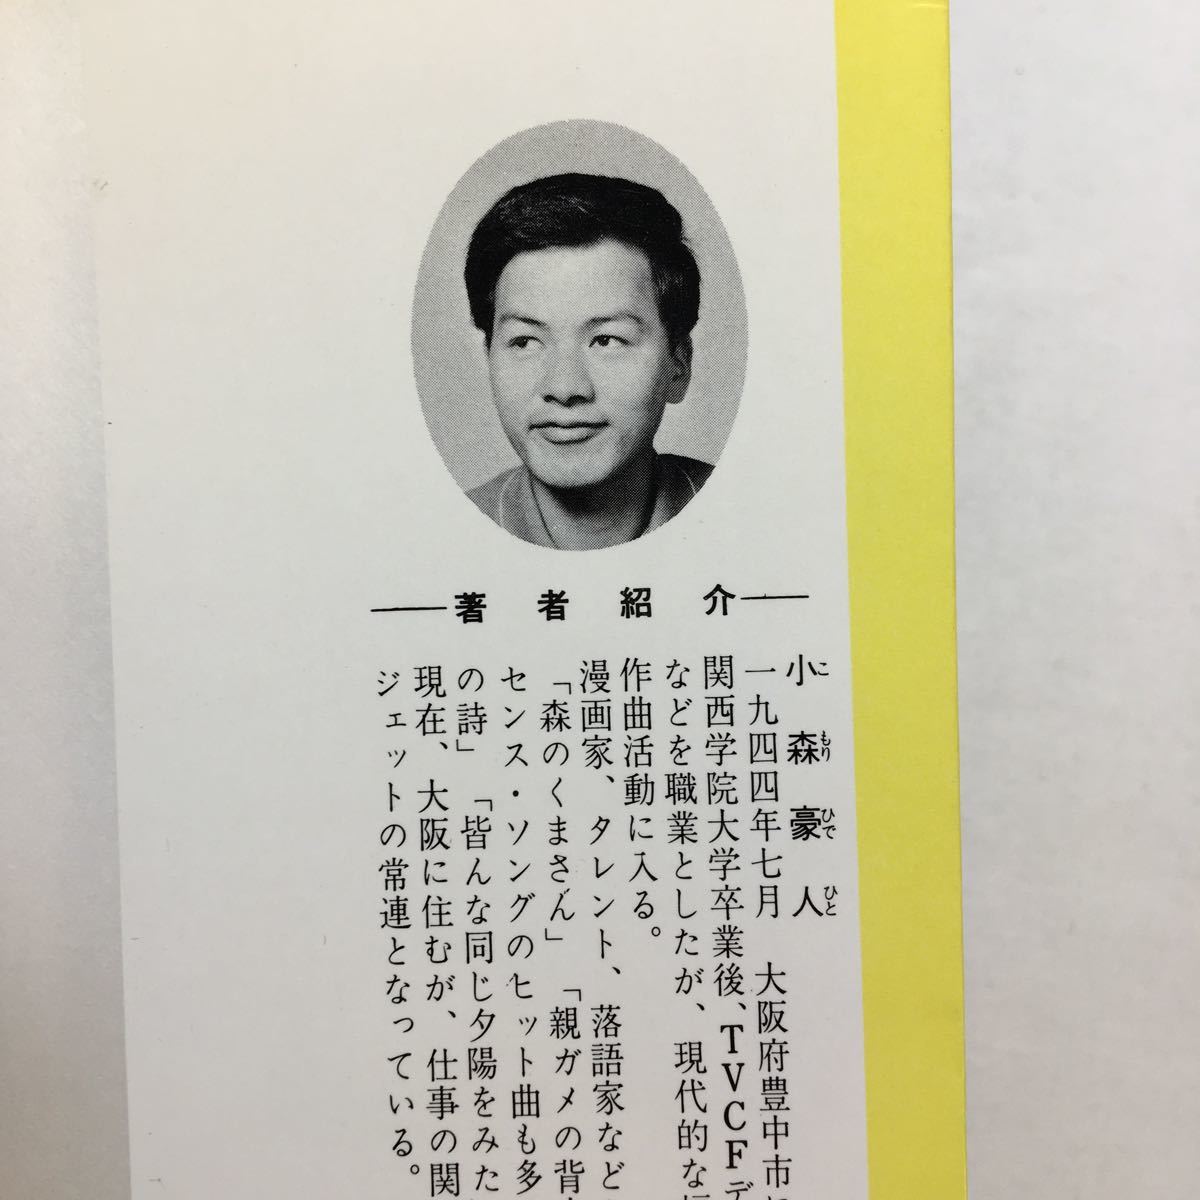 著者紹介
小森豪人
こもりひでひと
一九四四年七月 大阪府豊中市に
関西学院大学卒業後、TVCFデ
などを職業としたが、現代的な
作曲活動に入る。
漫画家、タレント、落語家など
「森のくまさん」「親ガメの背
センス・ソングのヒット曲も多
の詩」「皆んな同じ夕陽をみた
現在、大阪に住むが、仕事の関
ジェットの常連となっている。